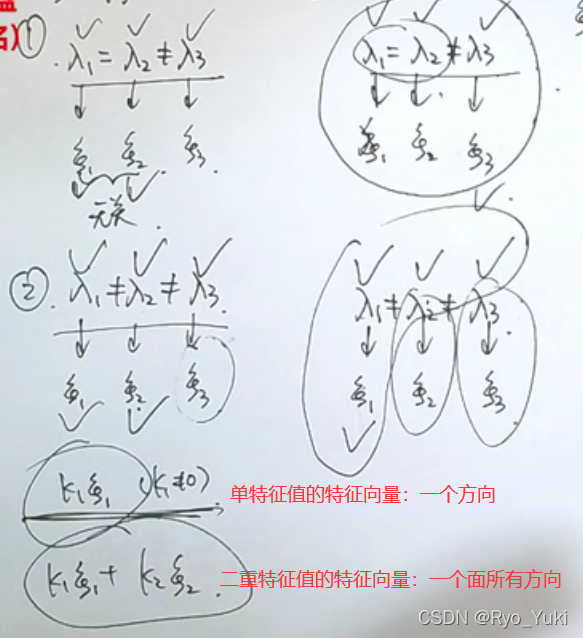 ① λ₁=λ₂≠λ₃
λ₁=λ₂≠λ₃
ξ₁ ξ₂ ξ₃
ξ₁ ξ₂ ξ₃
无关
② λ₁≠λ₂≠λ₃
λ₁≠λ₂≠λ₃
ξ₁ ξ₂ ξ₃
ξ₁ ξ₂ ξ₃
k₁ξ₁ (k₁≠0) 单特征值的特征向量：一个方向
k₁ξ₁+k₂ξ₂. 二重特征值的特征向量：一个面所有方向
CSDN @Ryo_Yuki